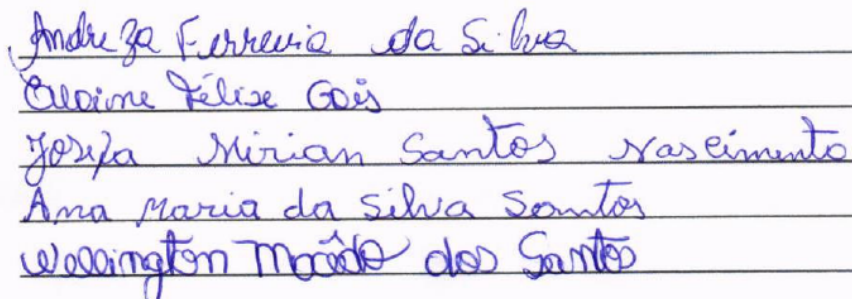 Andreza Ferreira da Silva
Elaine Félix Gois
Josefa Mirian Santos Nascimento
Ana Maria da Silva Santos
Wellington Macêdo dos Santos